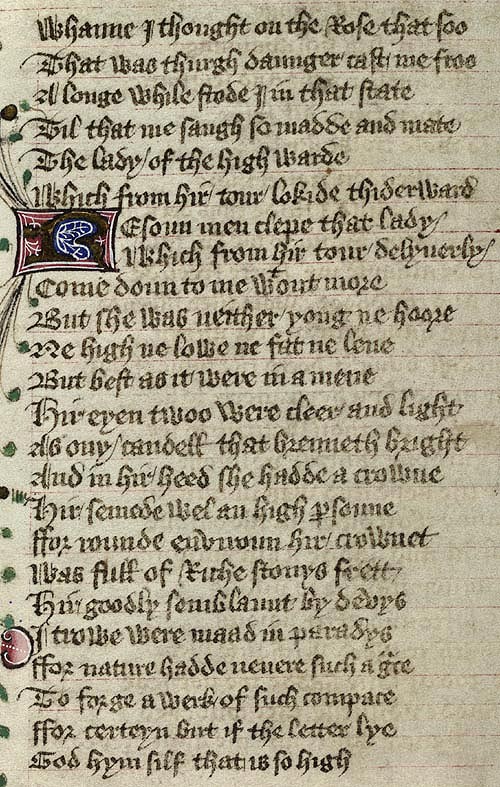 Whanne I thought on the Rose that soo
That was thurgh daunger cast me froo
A longe while stode I in that state
Til that me saugh so madde and mate
The lady / of the high warde
Which from hir tour lokide thiderward
Resoun men clepe that lady /
Which from hir tour delyuerly /
Come doun to me wtout more
But she was neither yong ne hoore
Ne high ne lowe ne fat ne lene
But best as it were in a mene
Hir eyen twoo were cleer and light
As ony / candell that brenneth bright
And in hir heed she hadde a crowne
Hir semede wel an high ꝑsoune
ffor rounde enviroun hir crownet
Was full of Riche stonys frett
Hir goodly semblaunt by devys
I trowe were maad in paradys
ffor nature hadde neuere such a gͣce
To forge a werk of such compace
ffor certeyn but if the letter lye
God hym silf that is so high